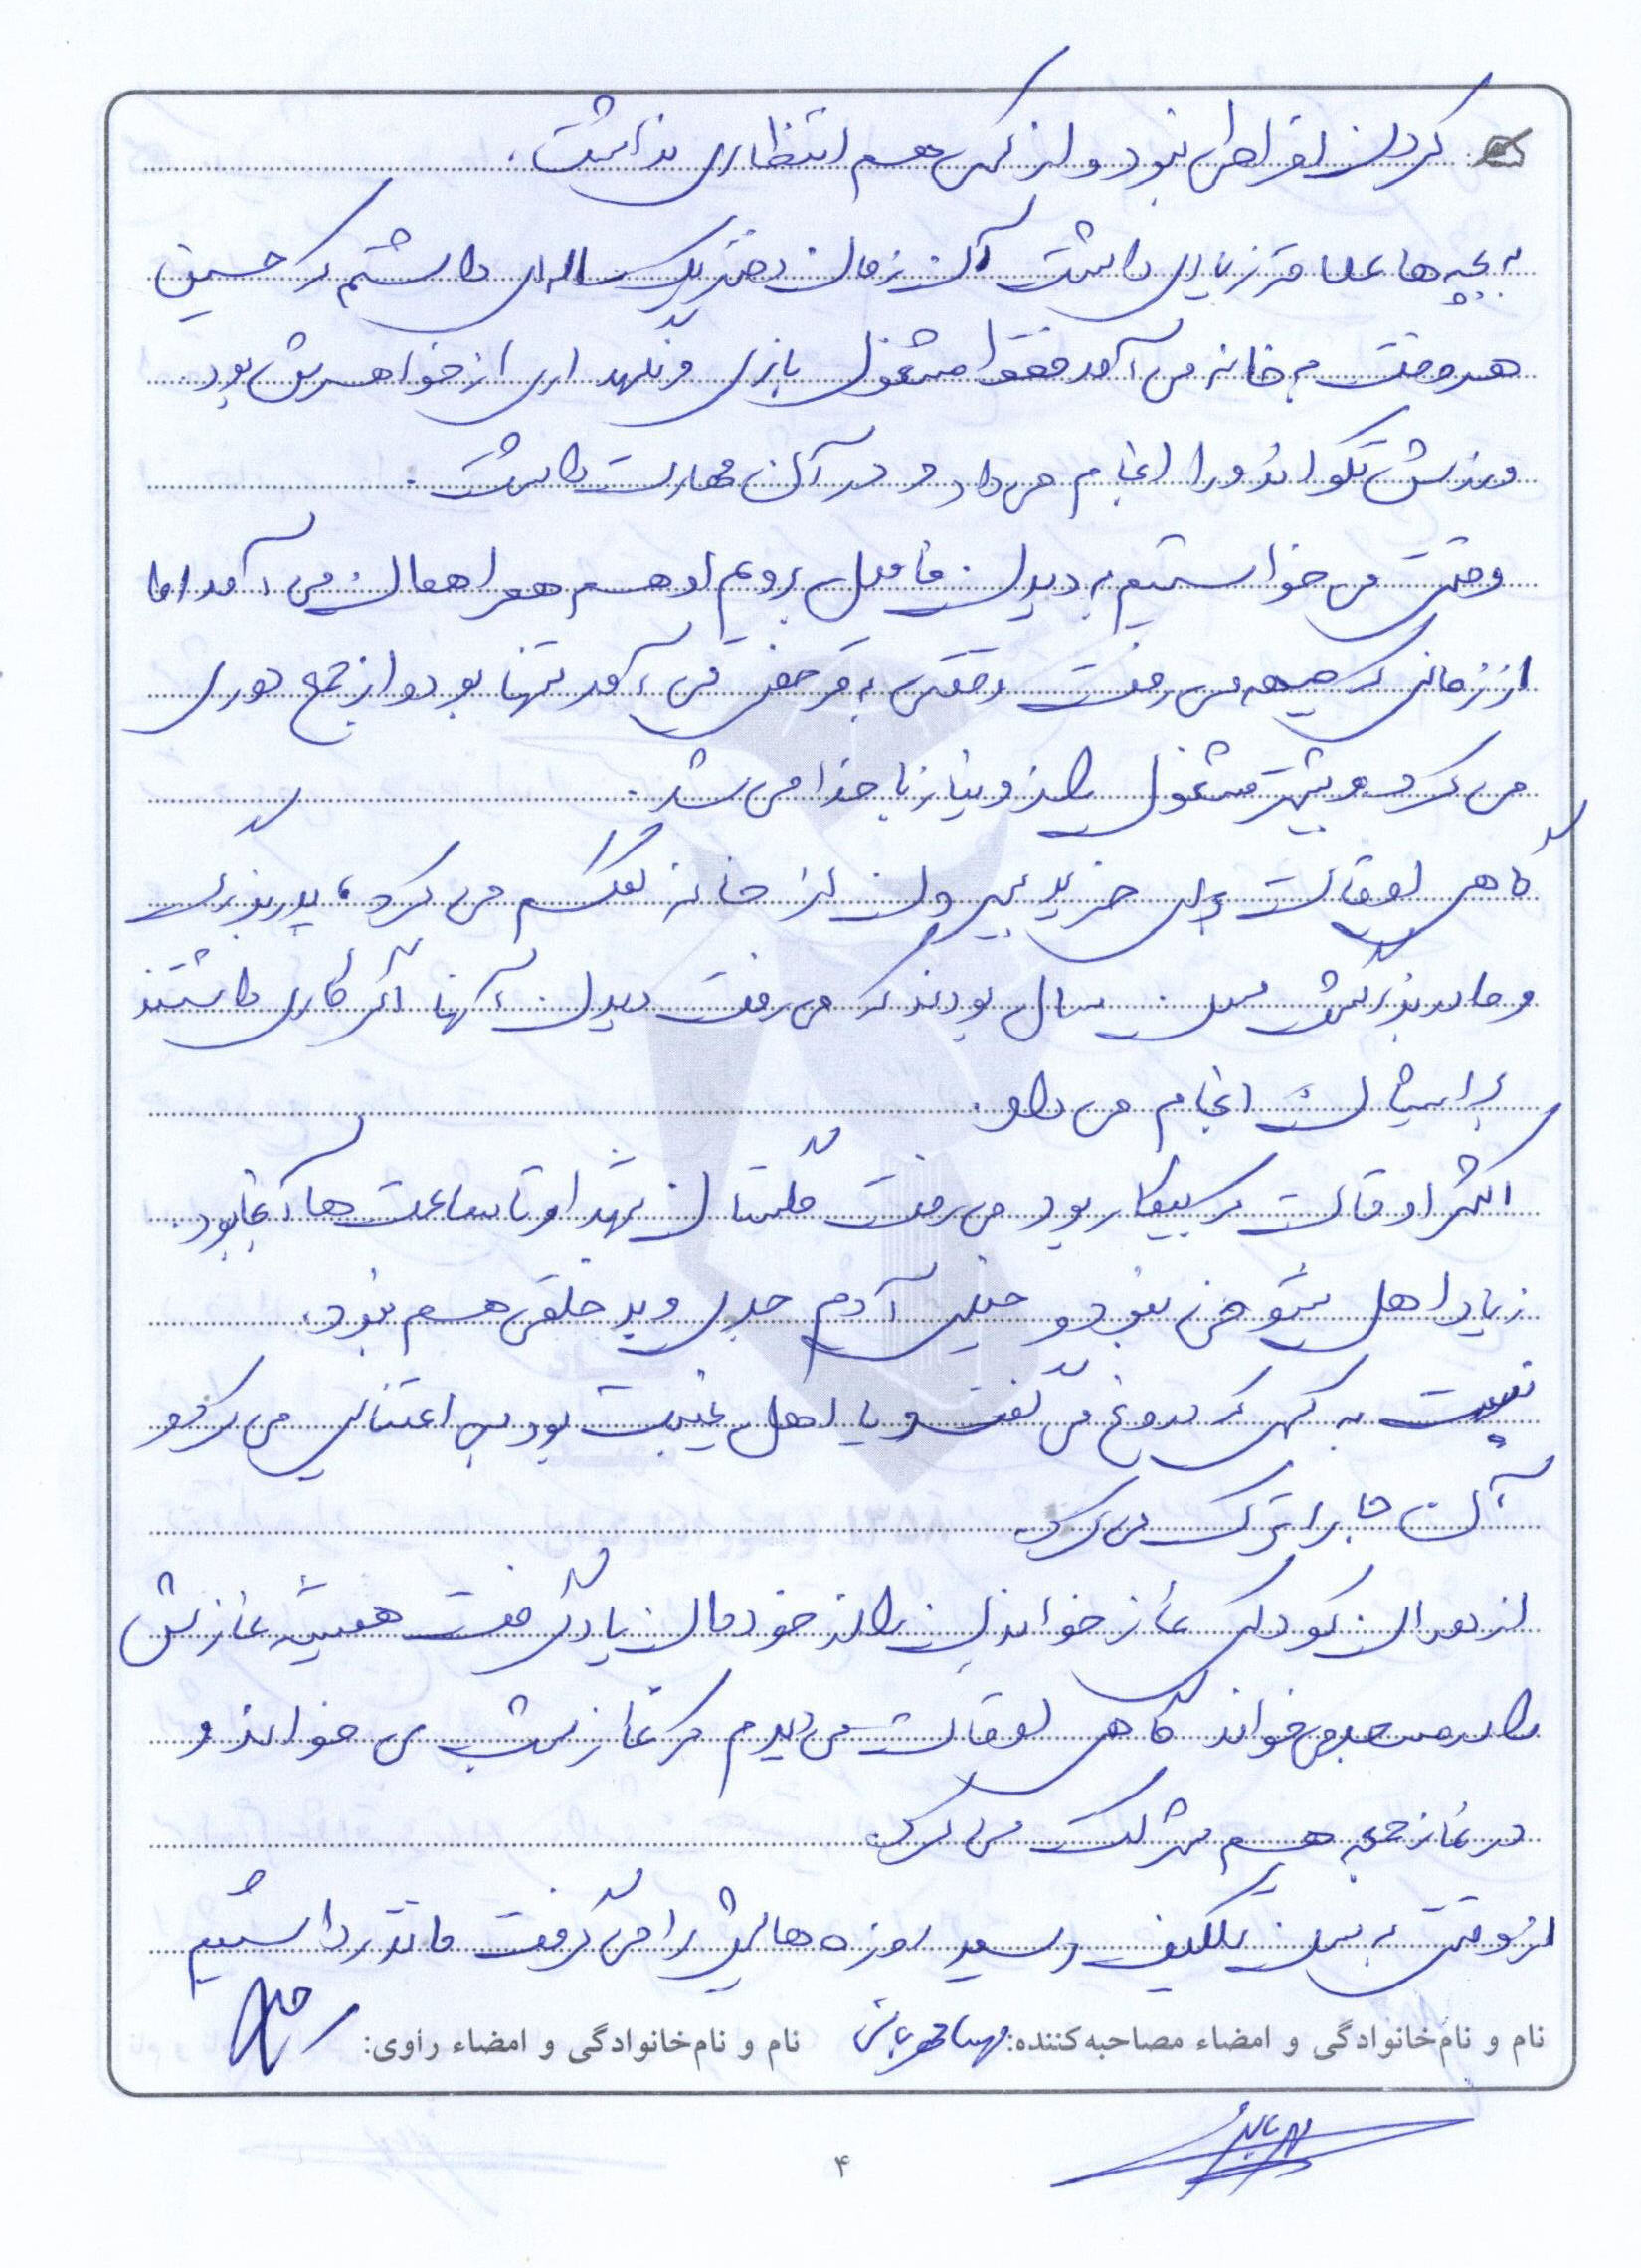 کردن افراطی نبود و از کسی هم انتظاری نداشت.
به بچه ها علاقه زیادی داشت آن زمان دختر یک ساله ای داشتم که حسین
هر وقت به خانه می آمد فقط مشغول بازی و نگهداری از خواهرش بود.
ورزش تکواندو را انجام می داد و در آن مهارت داشت.
وقتی می خواستیم به دیدن فامیل برویم او هم همراهمان می آمد اما
از زمانی که جبهه می رفت وقتی به مرخصی می آمد تنها بود و از جمع دوری
می کرد و بیشتر مشغول راز و نیاز با خدا می شد.
گاهی اوقات برای خرید بیرون از خانه کمکم می کرد، پدربزرگ
و مادربزرگش مسن سال بودند که می رفت دیدن آنها اگر کاری داشتند
برایشان انجام می داد.
اکثر اوقات که بیکار بود می رفت گلستان شهدا و تا ساعت ها آنجا بود.
زیاد اهل شوخی نبود و خیلی آدم جدی و بد خلقی هم نبود.
نسبت به کسی که دروغ می گفت و یا اهل غیبت بود بی اعتنایی می کرد و
آن جا را ترک می کرد.
از دوران کودکی نماز خواندن را از خودمان یاد گرفت همیشه نمازش
را در مسجد می خواند گاهی اوقات می دیدم که نماز شب می خواند و
در نماز جمعه هم شرکت می کرد.
از وقتی به سن تکلیف رسید روزه هایش را می گرفت ما نذر داشتیم
نام و نام‌خانوادگی و امضاء مصاحبه‌کننده: نام و نام‌خانوادگی و امضاء راوی:
۴